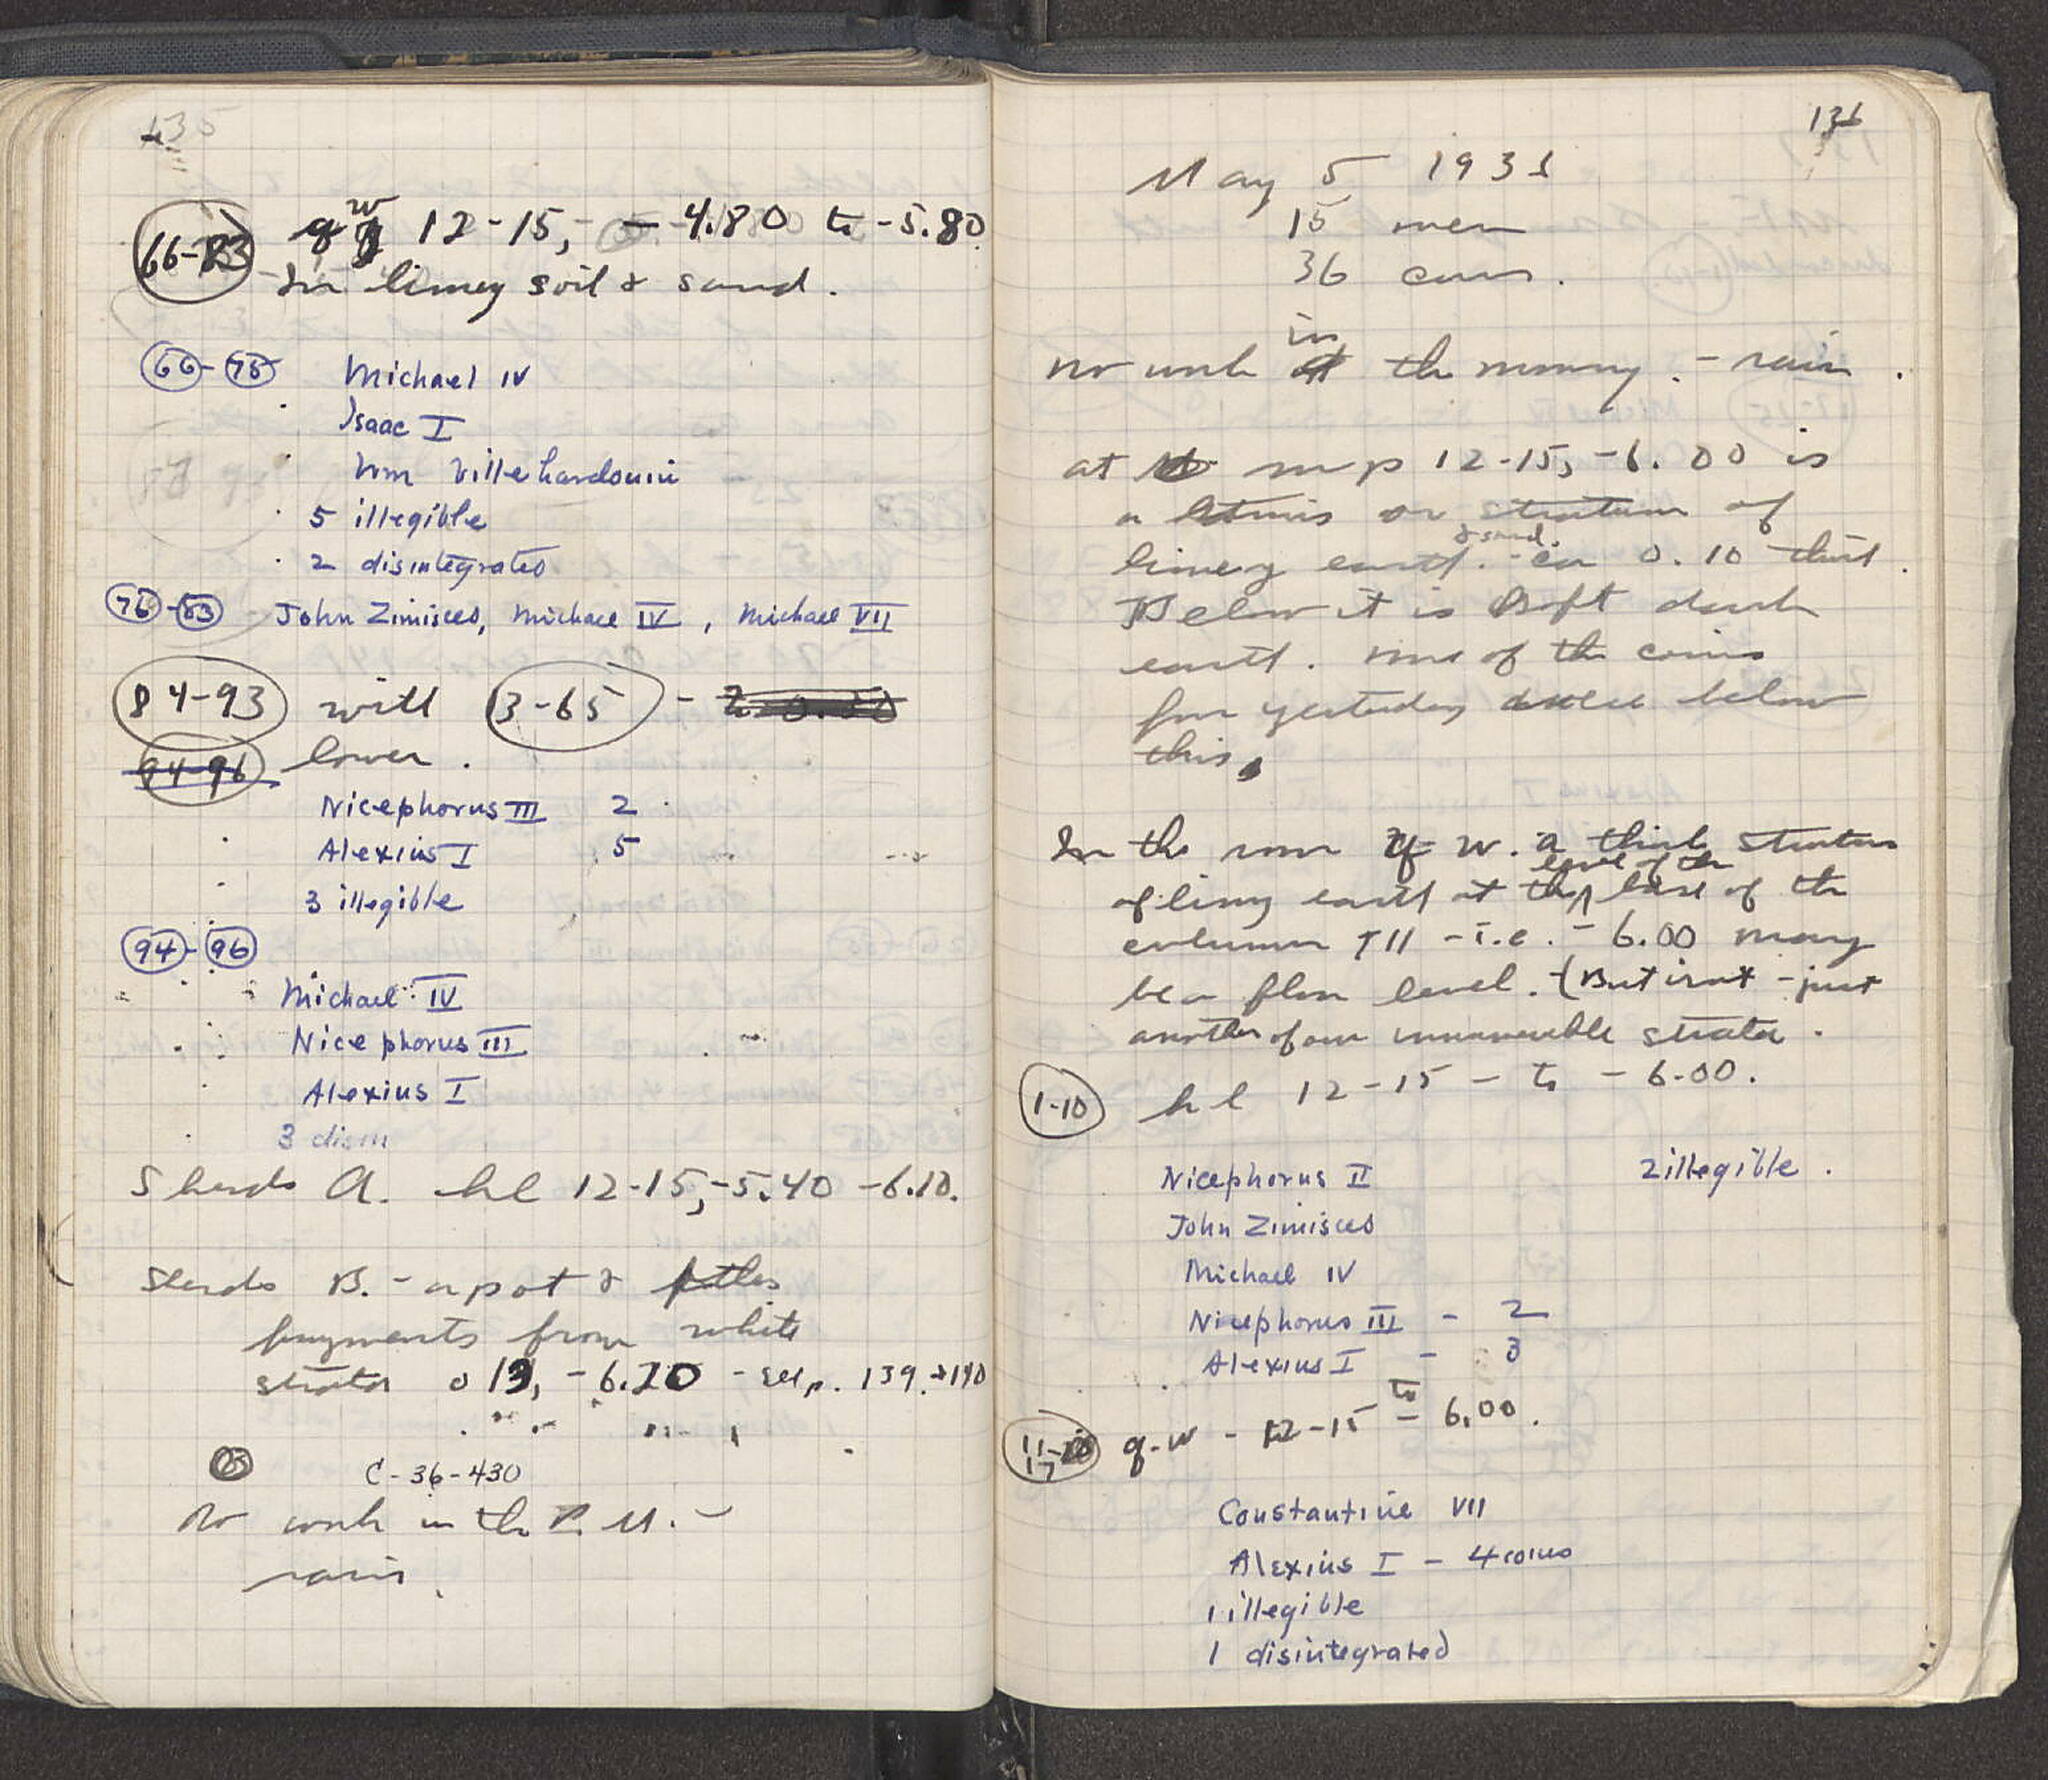 135
66-83 qw 12-15, - 4.80 to -5.80
In limey soil & sand.
66-75 Michael IV
Isaac I
Wm Villehardouin
5 illegible
2 disintegrated
76-83 John Zimisces, Michael IV, Michael VII
84-93 with 3-65 -
94-96 lower.
Nicephorus III 2
Alexius I 5
3 illegible
94-96
Michael IV
Nicephorus III
Alexius I
3 disin
Sherds A. hl 12-15, -5.40 -6.10.
Sherds B. - a pot &
fragments from white
strata o 13, -6.20 - see p. 139 + 140
C-36-430
No work in the P.M. -
rain.
136
May 5 1931
15 men
36 cars.
No work in the morning. - rain.
at m p 12-15, -6.00 is
a stratum of
limey earth & sand. - ca 0.10 thick.
Below it is soft dark
earth. None of the coins
for yesterday were below
this.
In the room q-w. a thick stratum
of limy earth at the level of the base of the
column T11 - i.e. - 6.00 may
be a floor level. (But isn't - just
another of our innumerable strata.
1-10 hl 12-15 - to - 6.00.
Nicephorus II 2 illegible.
John Zimisces
Michael IV
Nicephorus III - 2
Alexius I - 3
11-17 q-w - 12-15 to - 6.00.
Constantine VII
Alexius I - 4 coins
1 illegible
1 disintegrated